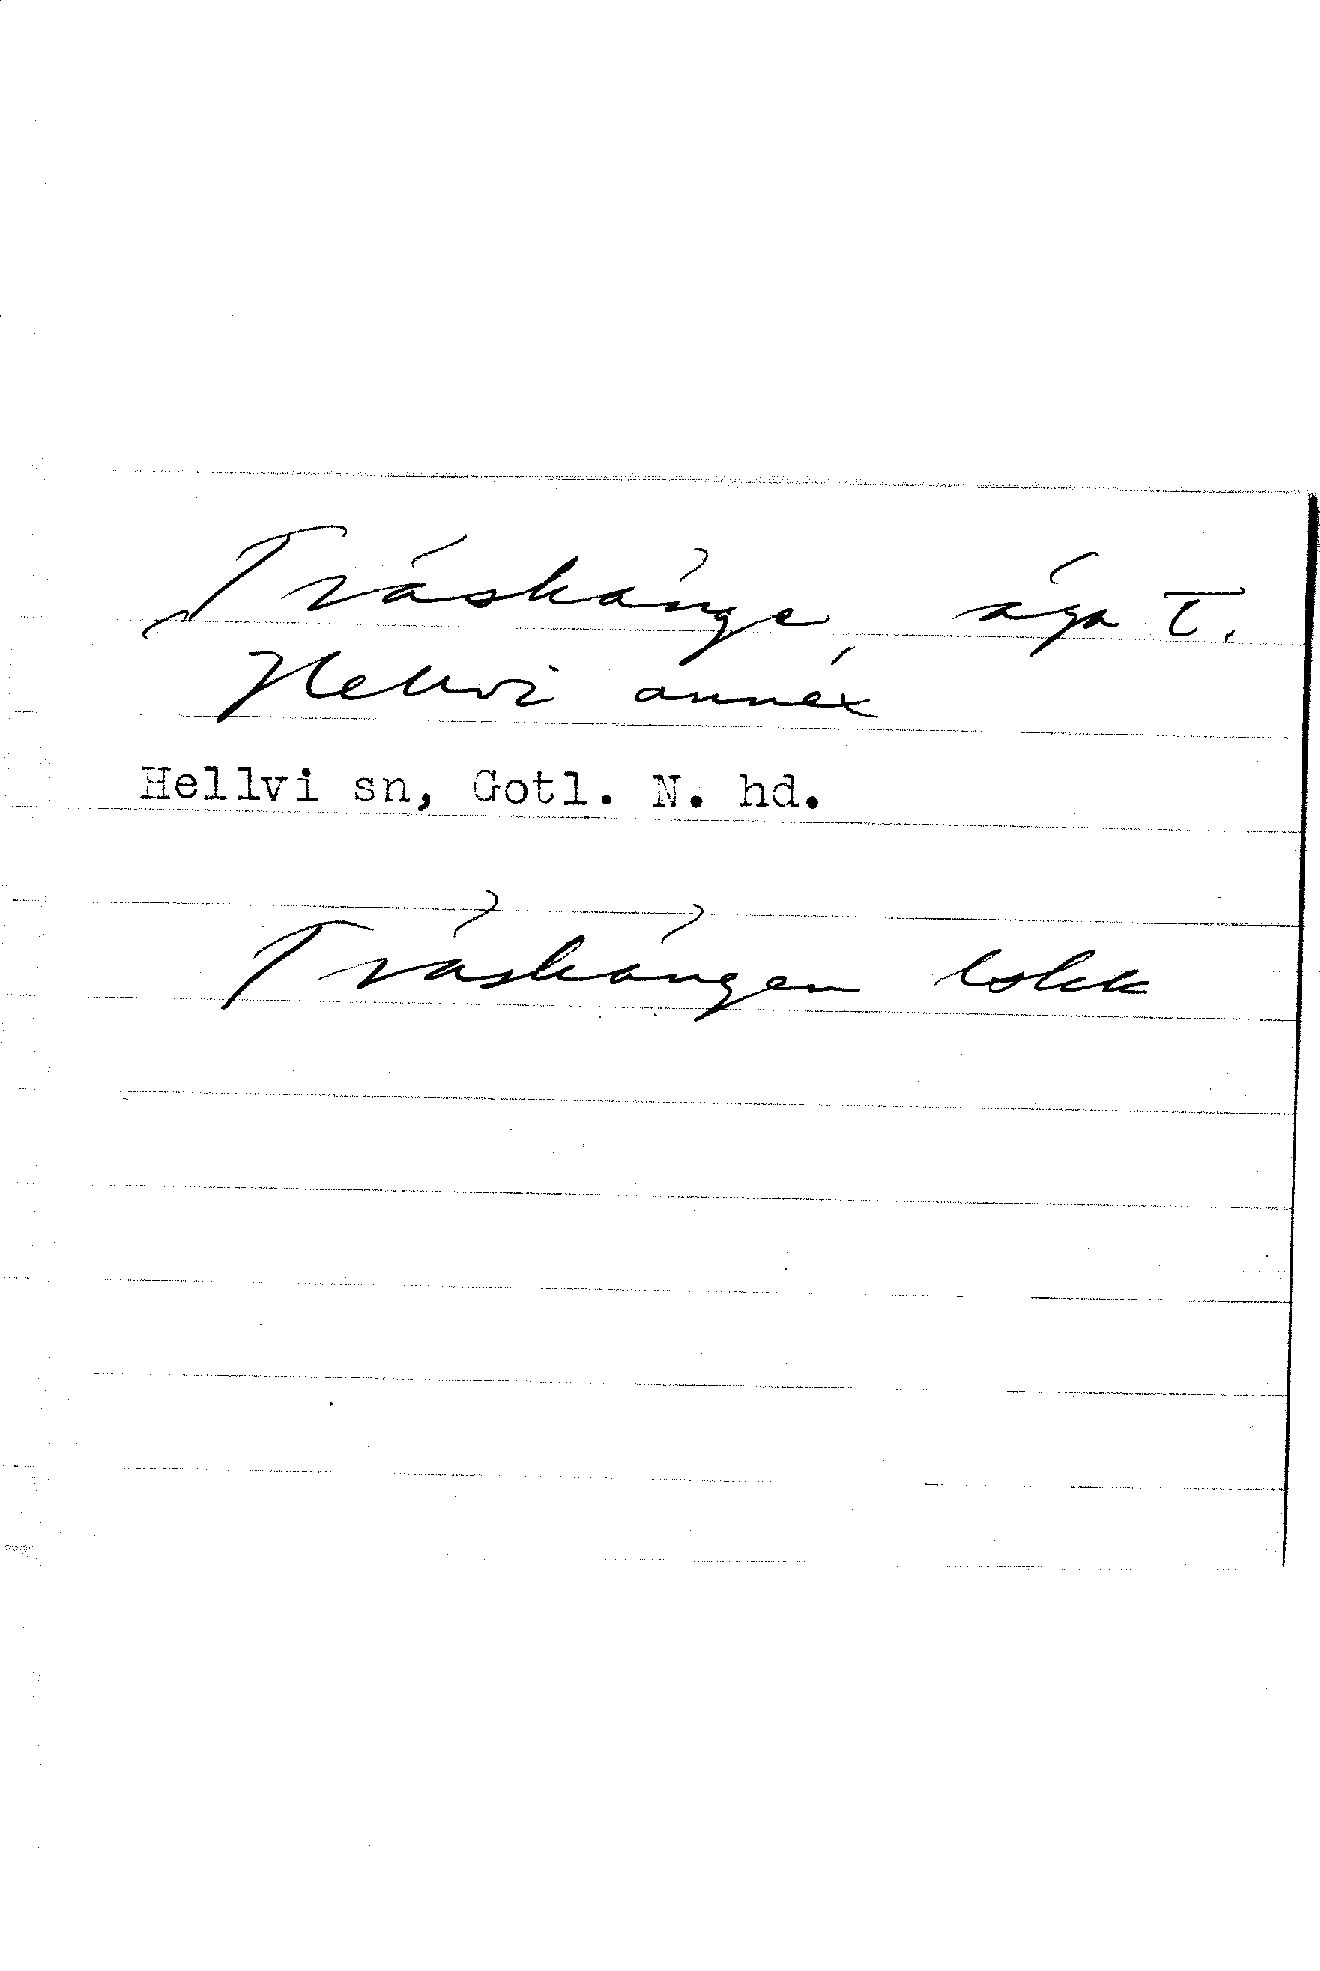 Träskänge, äga T.
Hellvi annéx
Hellvi sn, Gotl. N. hd.
Träskängen